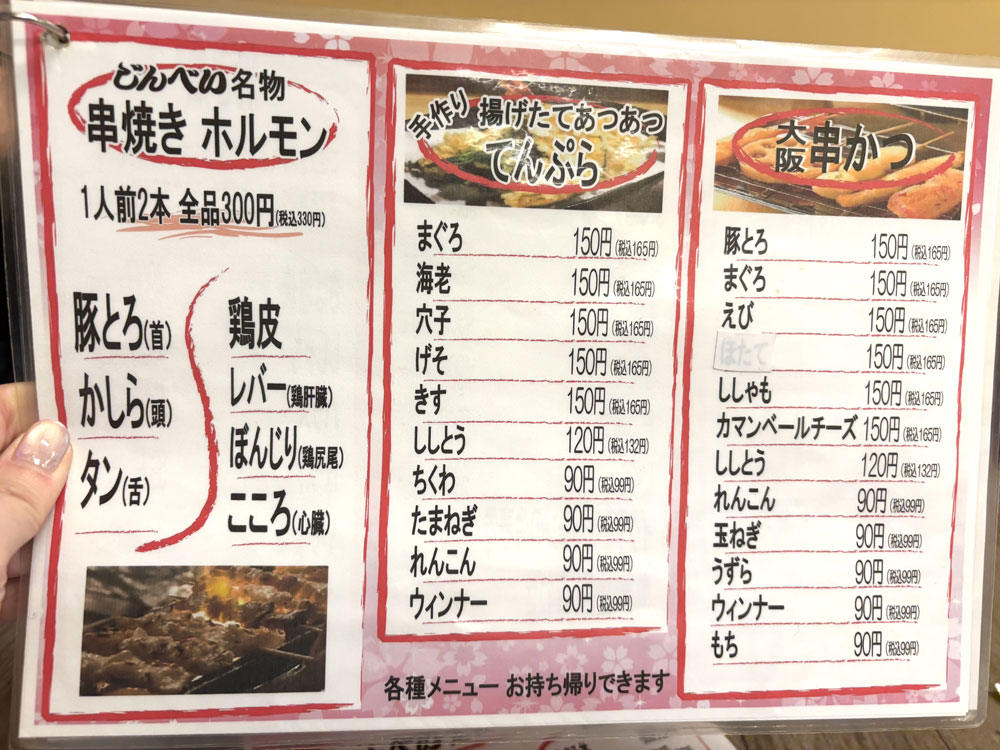 どんべい名物
串焼き ホルモン
1人前2本 全品300円(税込330円)
豚とろ(首)
かしら(頭)
タン(舌)
鶏皮
レバー(鶏肝臓)
ぼんじり(鶏尻尾)
こころ(心臓)
手作り 揚げたてあつあつ
てんぷら
まぐろ 150円(税込165円)
海老 150円(税込165円)
穴子 150円(税込165円)
げそ 150円(税込165円)
きす 150円(税込165円)
ししとう 120円(税込132円)
ちくわ 90円(税込99円)
たまねぎ 90円(税込99円)
れんこん 90円(税込99円)
ウィンナー 90円(税込99円)
大阪 串かつ
豚とろ 150円(税込165円)
まぐろ 150円(税込165円)
えび 150円(税込165円)
ほたて 150円(税込165円)
ししゃも 150円(税込165円)
カマンベールチーズ 150円(税込165円)
ししとう 120円(税込132円)
れんこん 90円(税込99円)
玉ねぎ 90円(税込99円)
うずら 90円(税込99円)
ウィンナー 90円(税込99円)
もち 90円(税込99円)
各種メニュー お持ち帰りできます